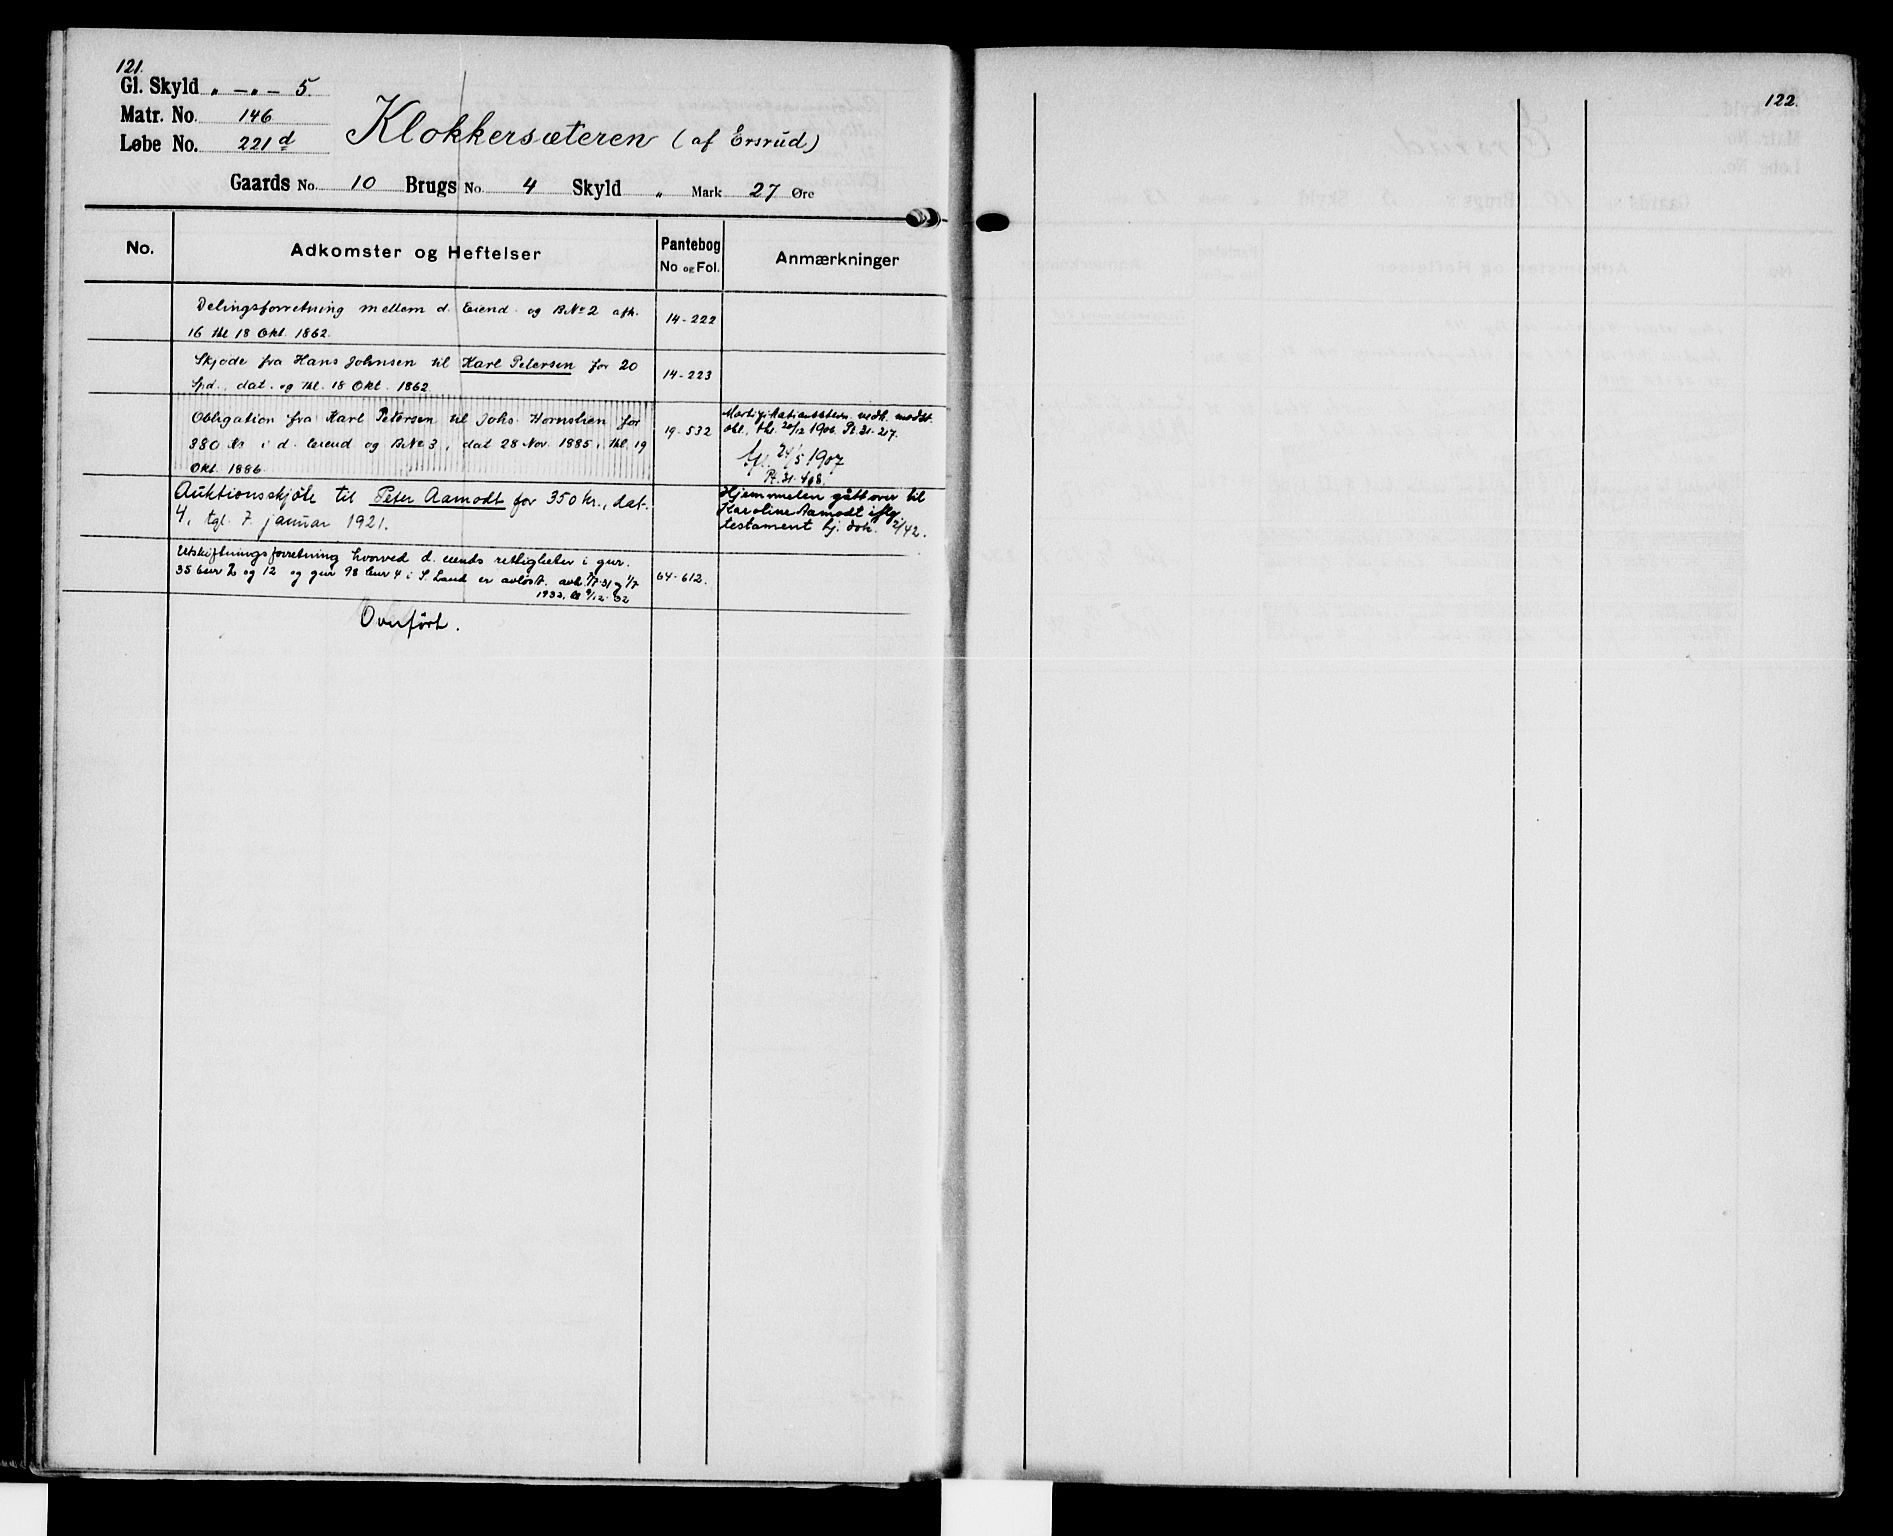 121.
Gl. Skyld „ – „ – 5.
Matr. No. 146
Løbe No. 221 d
Klokkersæteren (af Ersrud)
Gaards No. 10 Brugs No. 4 Skyld „ Mark 27 Øre
No. Adkomster og Heftelser Pantebog No og Fol. Anmærkninger
Delingsforretning mellem d. Eiend. og B.No 2 afh.
16 thl 18 Okt. 1862. 14-222
Skjøde fra Hans Johnsen til Karl Petersen for 20
Spd., dat. og thl. 18 Okt. 1862. 14-223
Obligation fra Karl Petersen til Johs. Hornslien for
380 Kr i d. Eiend og B.No 3, dat 28 Nov. 1885, thl. 19
Okt. 1886. 19-532
Mortifikationsbevi. vedk. nævnt.
obl., thl. 20/12 1906. Pt. 31-217.
24/5 1907
Pt. 31-498.
Auktionsskjøte til Peter Aamodt for 350 kr., dat.
4, tgl. 7. januar 1921.
Hjemmelen gått over til
Karoline Aamodt iflg.
testament hj. dok. 2/42.
Utskiftningsforretning hvorved d. eiends rettigheter i gnr.
35 bnr 2 og 12 og gnr 98 bnr 4 i S. Land er avløst. avh.
1932, 64-612.
Overført.
122.